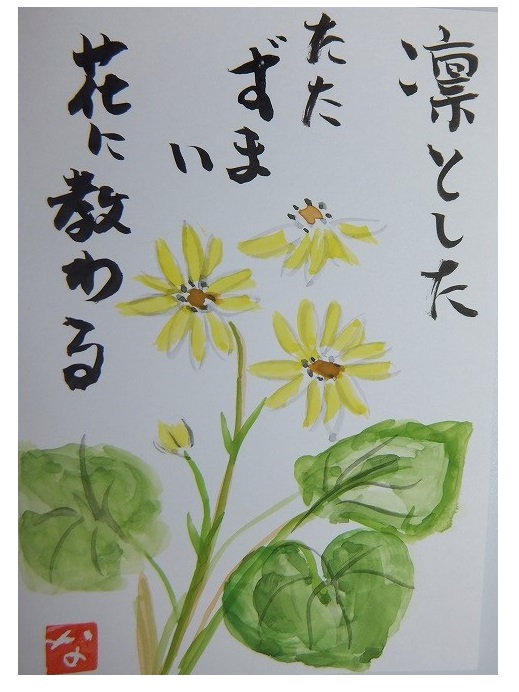 凛とした
たた
ずま
い
花に教わる
な